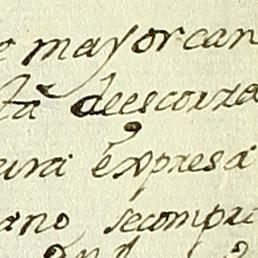 e mayor can
ta deescorza
ura expresa
ano secompre